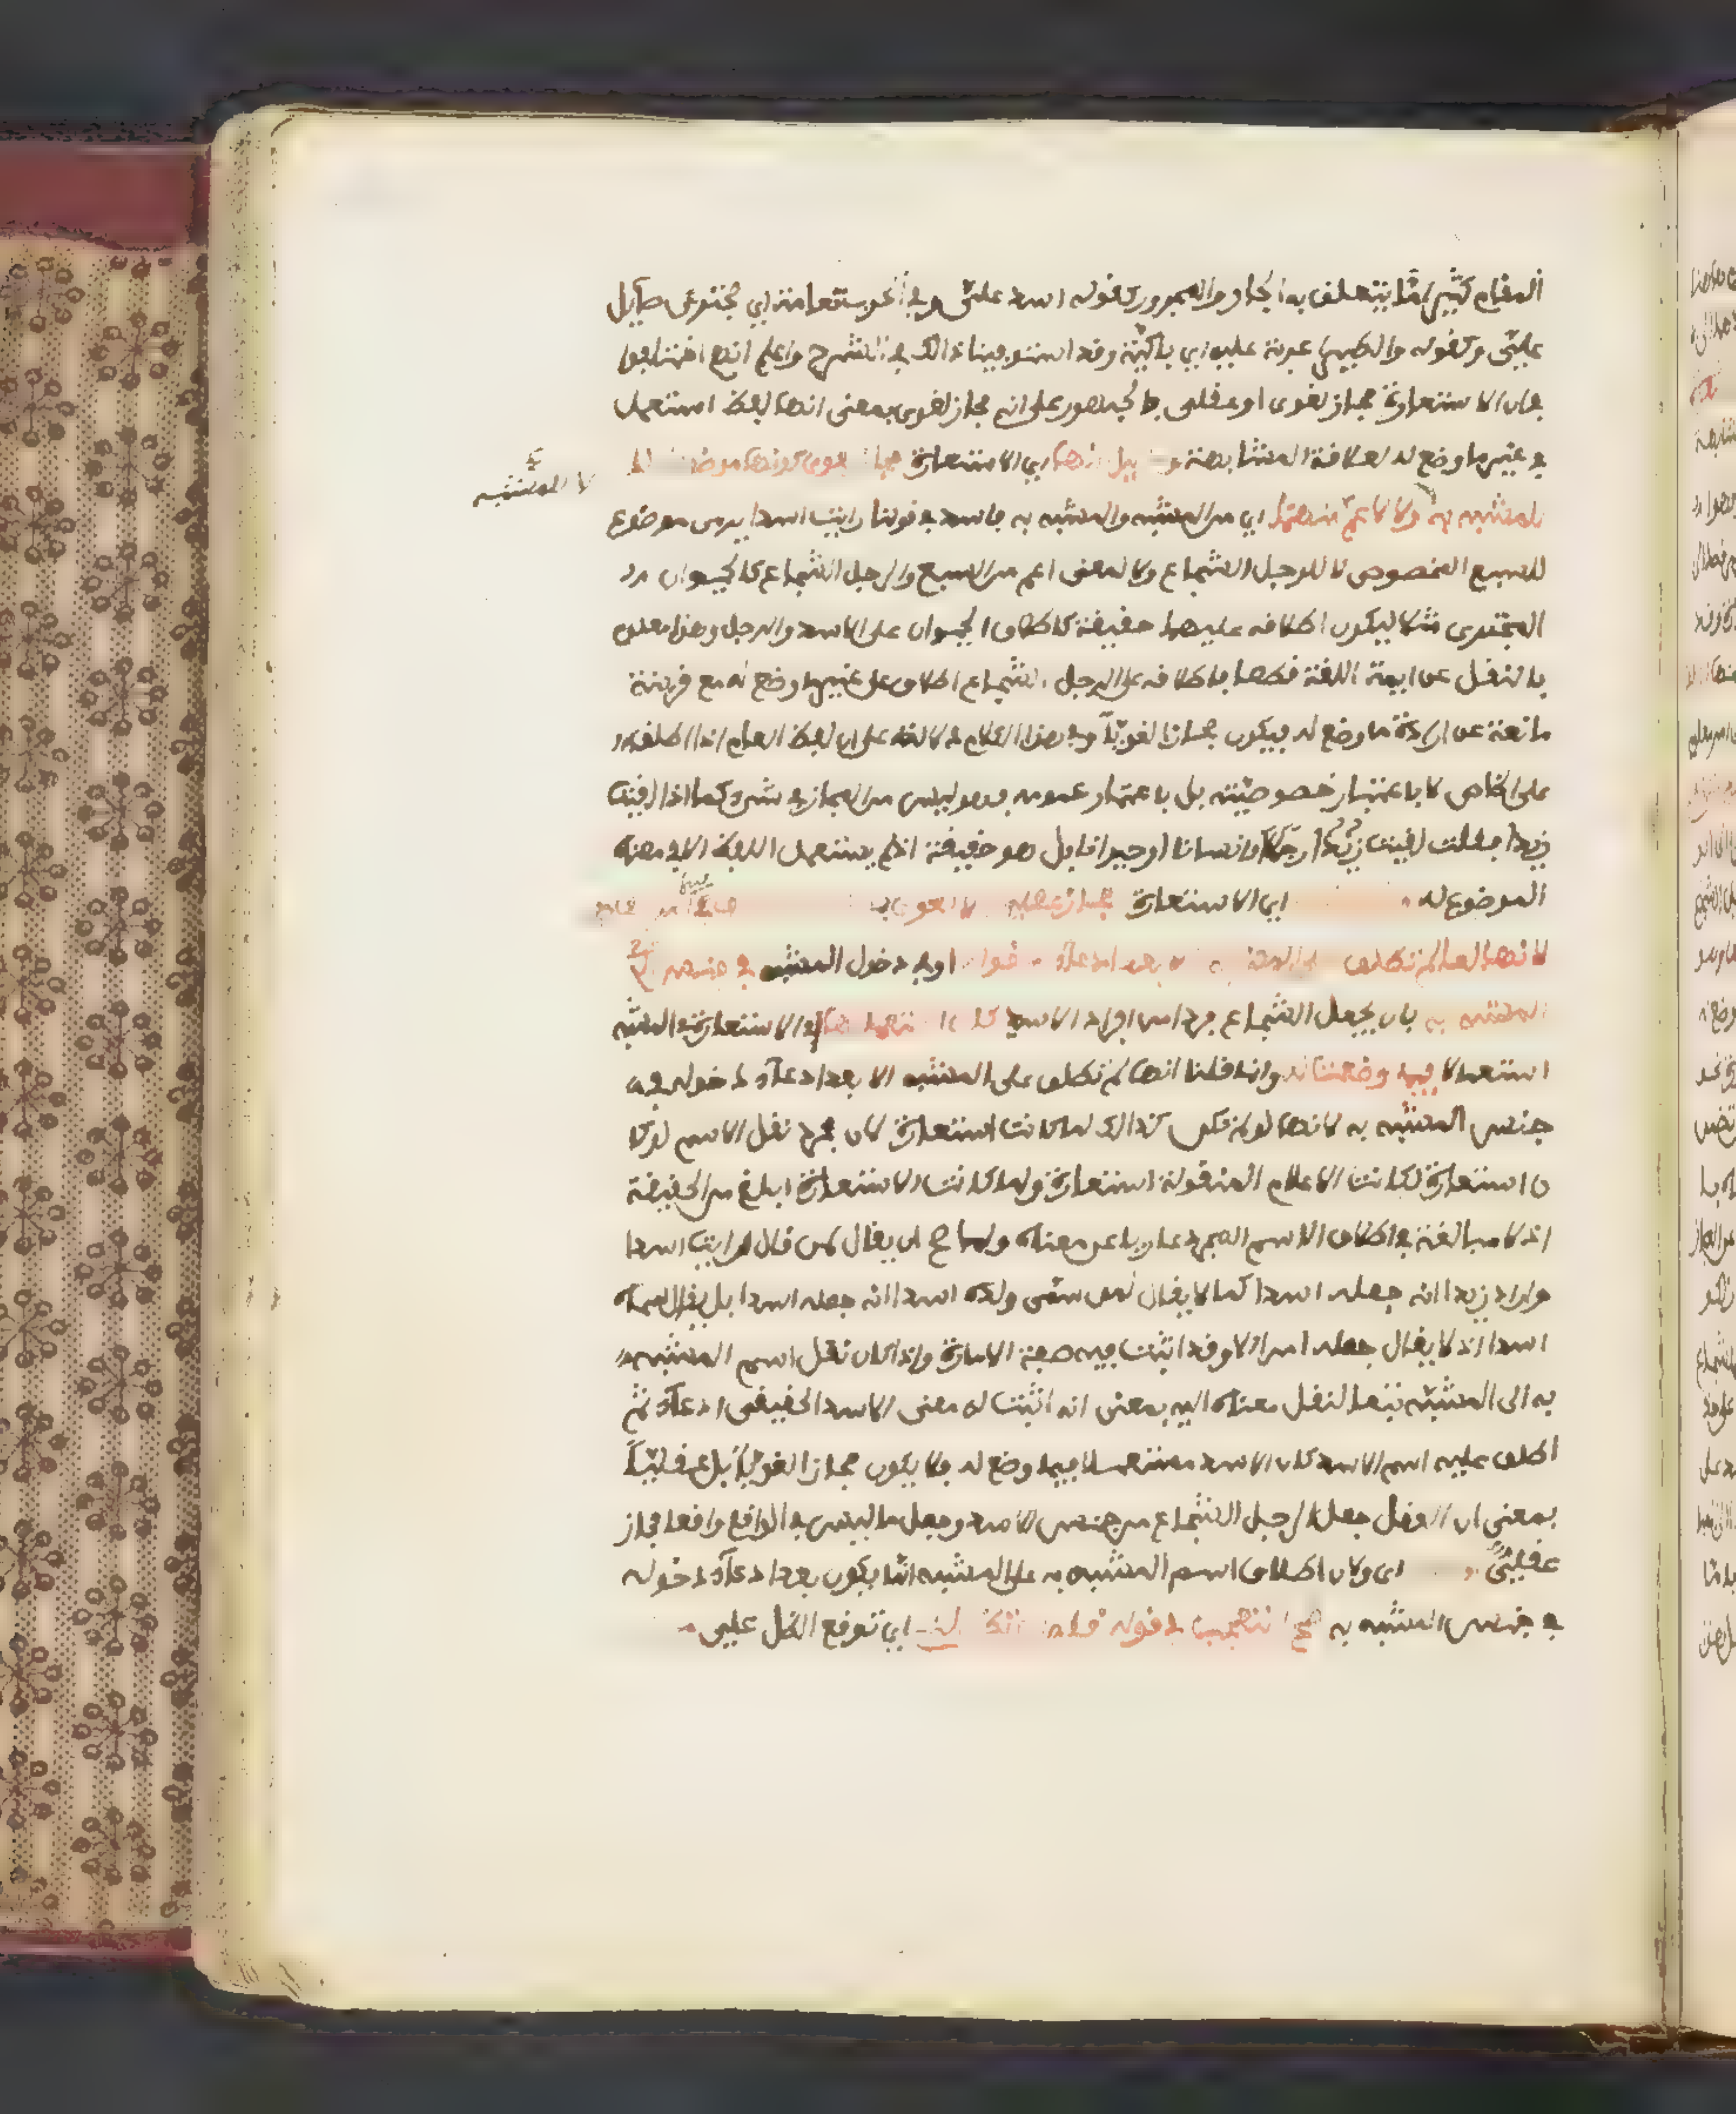 المقام كثير اما يتعلق به الجار والمجرور كقوله اسد علي وفي الحروب نعامة اي مجترئ صايل
علي وكقوله والطير اغربة عليه اي باكية وقد استوفينا ذالك في الشرح واعلم انهم اختلفوا
في ان الاستعارة مجاز لغوي او عقلي فالجمهور على انه مجاز لغوي بمعنى انها لفظ استعمل
في غير ما وضع له لعلاقة المشابهة و انها اي الاستعارة مجاز لغوي كونها موضوعة
لا للمشبه
للمشبه به ولا لاعم منهما اي من المشبه والمشبه به فاسد في قولنا رايت اسدا يرمي موضوع
للسبع المخصوص لا للرجل الشجاع ولا لمعنى اعم من السبع والرجل الشجاع كالحيوان
المجتري مثلا ليكون اطلاقه عليهما حقيقة كاطلاق الحيوان على الاسد والرجل وهذا معلوم
بالنقل عن ايمة اللغة قطعا فاطلاقه على الرجل الشجاع اطلاق على غير ما وضع له مع قرينة
مانعة عن ارادة ما وضع له فيكون مجازا لغويا وفي هذا الكلام دلالة على ان لفظ العام اذا اطلق
على الخاص لا باعتبار خصوصيته بل باعتبار عمومه فهو ليس من المجاز في شيء كما اذا لقيت
زيدا فقلت لقيت زيدا رجلا وانسانا او حيوانا بل هو حقيقة اذ لم يستعمل اللفظ الا في معناه
الموضوع له اي الاستعارة مجاز عقلي لا لغوي
لانها لما لم تطلق على المشبه الا بعد ادعاء دخوله اي دخول المشبه في جنس
المشبه به بان يجعل الشجاع فردا من افراد الاسد كان استعمالها اي الاستعارة في المشبه
استعمالا فيما وضعت له وانما قلنا انها لم تطلق على المشبه الا بعد ادعاء دخوله في
جنس المشبه به لانها لو لم تكن كذالك لما كانت استعارة لان مجرد نقل الاسم لو كا
ن استعارة لكانت الاعلام المنقولة استعارة ولما كانت الاستعارة ابلغ من الحقيقة
اذ لا مبالغة في اطلاق الاسم المجرد عاريا عن معناه ولما صح ان يقال لمن قال رايت اسدا
واراد زيدا انه جعله اسدا كما لا يقال لمن سمى ولده اسدا انه جعله اسدا بل يقال سماه
اسدا اذ لا يقال جعله اميرا الا وقد اثبت فيه صفة الامارة واذا كان نقل اسم المشبه
به الى المشبه تبعا لنقل معناه اليه بمعنى انه اثبت له معنى الاسد الحقيقي ادعاء ثم
اطلق عليه اسم الاسد كان الاسد مستعملا فيما وضع له فلا يكون مجازا لغويا بل عقليا
بمعنى ان العقل جعل الرجل الشجاع من جنس الاسد وجعل ما ليس في الواقع واقعا مجاز
عقلي اي ولان اطلاق اسم المشبه به على المشبه انما يكون بعد ادعاء دخوله
في جنس المشبه به صح التعجب في قوله قامت تظللني اي توقع الظل علي